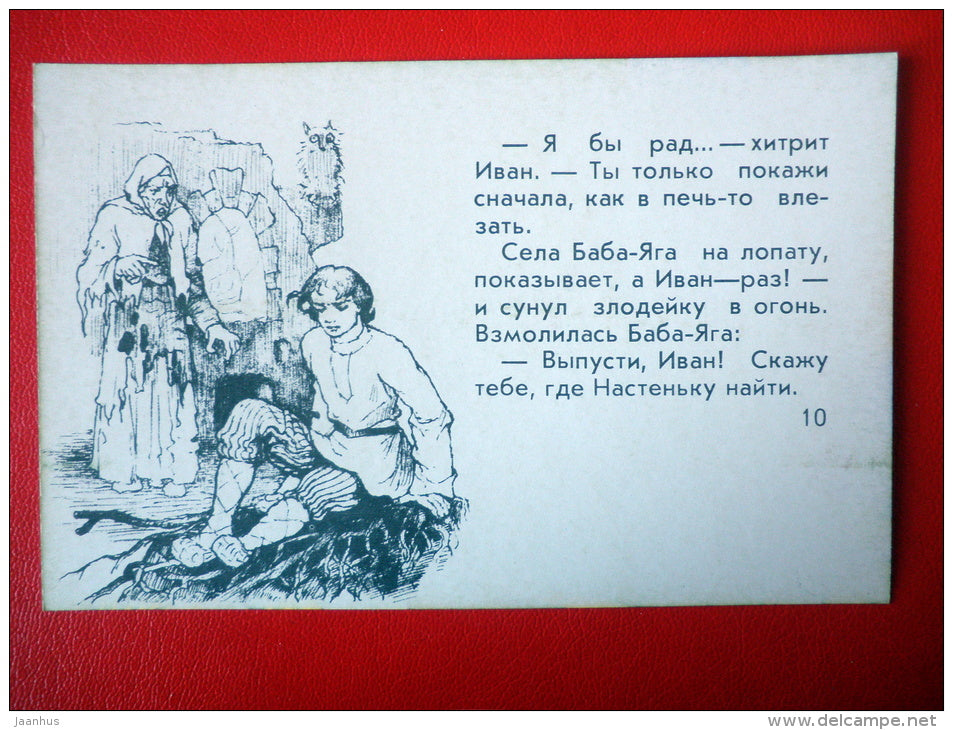 — Я бы рад... — хитрит
Иван. — Ты только покажи
сначала, как в печь-то вле-
зать.
Села Баба-Яга на лопату,
показывает, а Иван—раз! —
и сунул злодейку в огонь.
Взмолилась Баба-Яга:
— Выпусти, Иван! Скажу
тебе, где Настеньку найти.
10
Jaanhus
www.delcampe.net